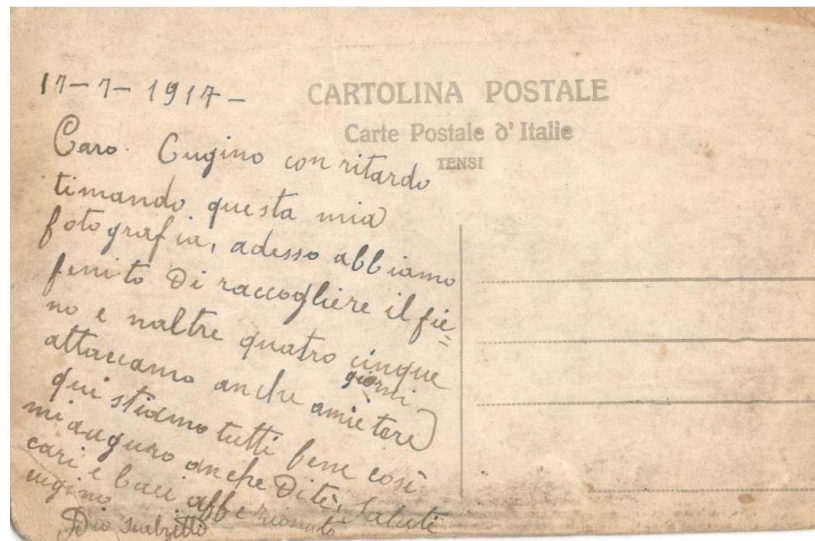 17-7-1917-
CARTOLINA POSTALE
Carte Postale d'Italie
TENSI
Caro. Cugino con ritardo
timando questa mia
fotografia, adesso abbiamo
fenito di raccogliere il fie=
no e naltre quatro cinque
giorni
attaccamo anche amietere
qui stiamo tutti bene così
mi auguro anche Dite, Saluti
cari e baci affezionato
cugino